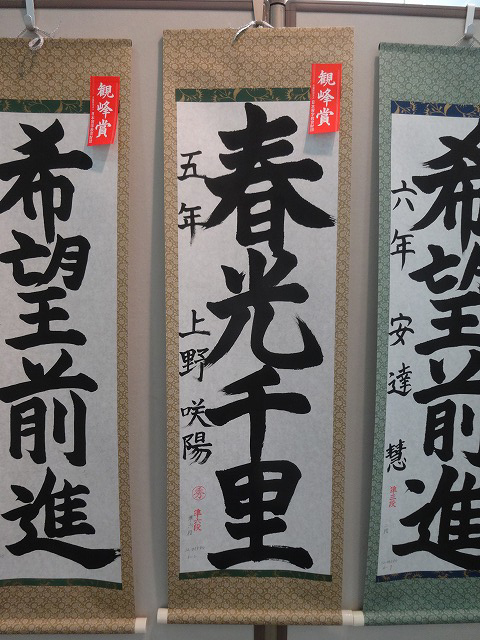 希望前進
観峰賞
春光千里
五年 上野 咲陽
観峰賞
秀
準六段
希望前進
六年 安達 慧
準三段